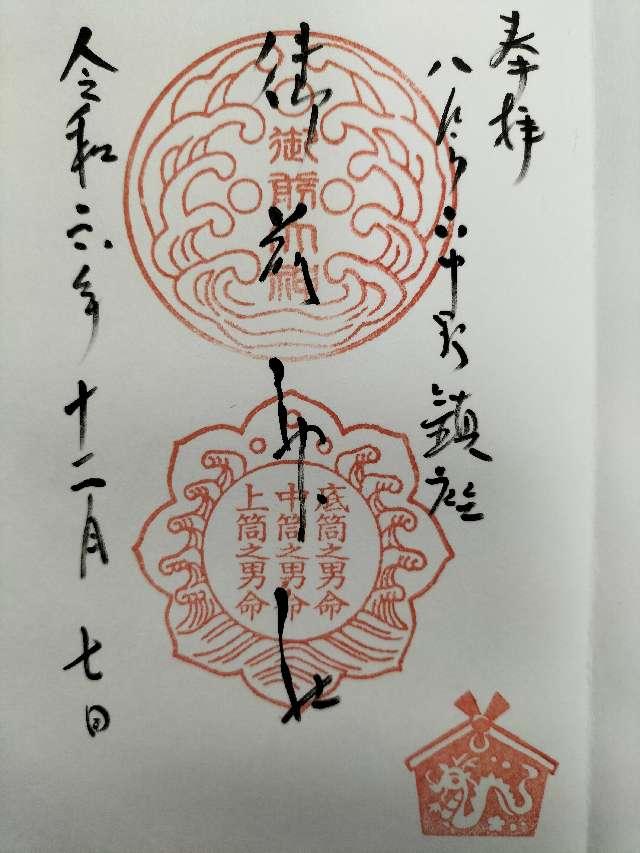 奉拝
八尾市中野鎮座
御前神社
令和六年
十二月
七日
御前神社
底筒之男命
中筒之男命
上筒之男命